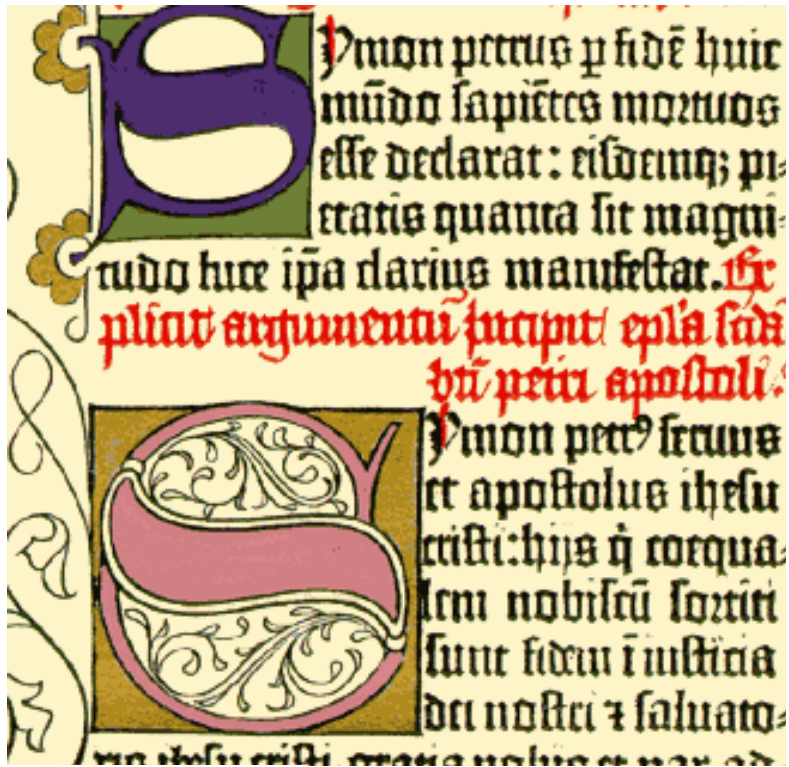 Symon petrus ꝑ fidē huic
mūdo ſapiētes mortuos
eſſe declarat: eiſdemqꝫ pi⸗
etatis quanta ſit magni⸗
tudo luce ip̄a clarius manifeſtat. Ex
plicit argumentū Incipit epl'a ſcd'a
bt̄i petri apoſtoli.
Symon petrꝰ ſeruus
et apoſtolus iheſu
criſti: hijs q̇ coequa⸗
lem nobiſcū ſortiti
ſunt fidem ī iuſticia
dei noſtri ⁊ ſaluato⸗
ris iheſu criſti. gratia vobis et pax ad⸗